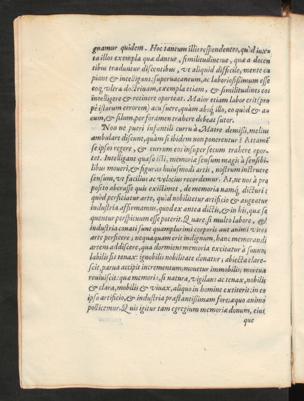 gnamur quidem. Hoc tantum illis respondentes, quòd iuxta
illos exempla quæ dantur, similitudinesue, quæ à docentibus
traduntur discentibus, ut aliquid difficile, mente capiant
& intelligant; superuacaneum, ac laboriosissimum esse
eoque ultra doctrinam, exempla etiam, & similitudines eos
intelligere & retinere oporteat. Maior etiam labor erit
istarum errorem) acu suere, quàm absque illo, eo quòd & acum,
& filum, per foramen trahere debeat sutor.
Non ne pueri infantili curru à Matre demissi, melius
ambulare discunt, quàm si ibidem non ponerentur? Attamen
se ipsos regere, & currum eos insuper secum trahere oportet.
Intelligant quæso isti, memoriam sensum magis à sensibilibus
moueri, & figuras huiusmodi artis, nostrum instruere
sensum, ut facilius ac velocius recordemur. At, ne nos à proposito
aberasse quis existimet, de memoria namque, dicturi
quòd perficiatur arte, quòd nobilitetur artificio & augeatur
industria, affirmamus, quod ex antea dictis, & in his, quæ sequentur
perspicuum esse poterit. Quare si multo labore, &
industria conati sunt quamplurimi corporis aut animi vires
arte perficere; nequaquam erit indignum, hanc memorandi
artem addiscere, qua dormiens memoria excitatur à somno,
labilis fit tenax: ignobilis nobilitate donatur; abiecta clarescit,
parua accipit incrementum; mouetur immobilis; mortua
reuiuiscit: quæ memoria, si natura, vigilans ac tenax, nobilis
& clara, mobilis & viuax, aliquo in homine extiterit: in eo
ipso artificio, & industria præstantissimam fore, æquo animo
pollicemur. Quis igitur tam egregium memoriæ donum, eius
que